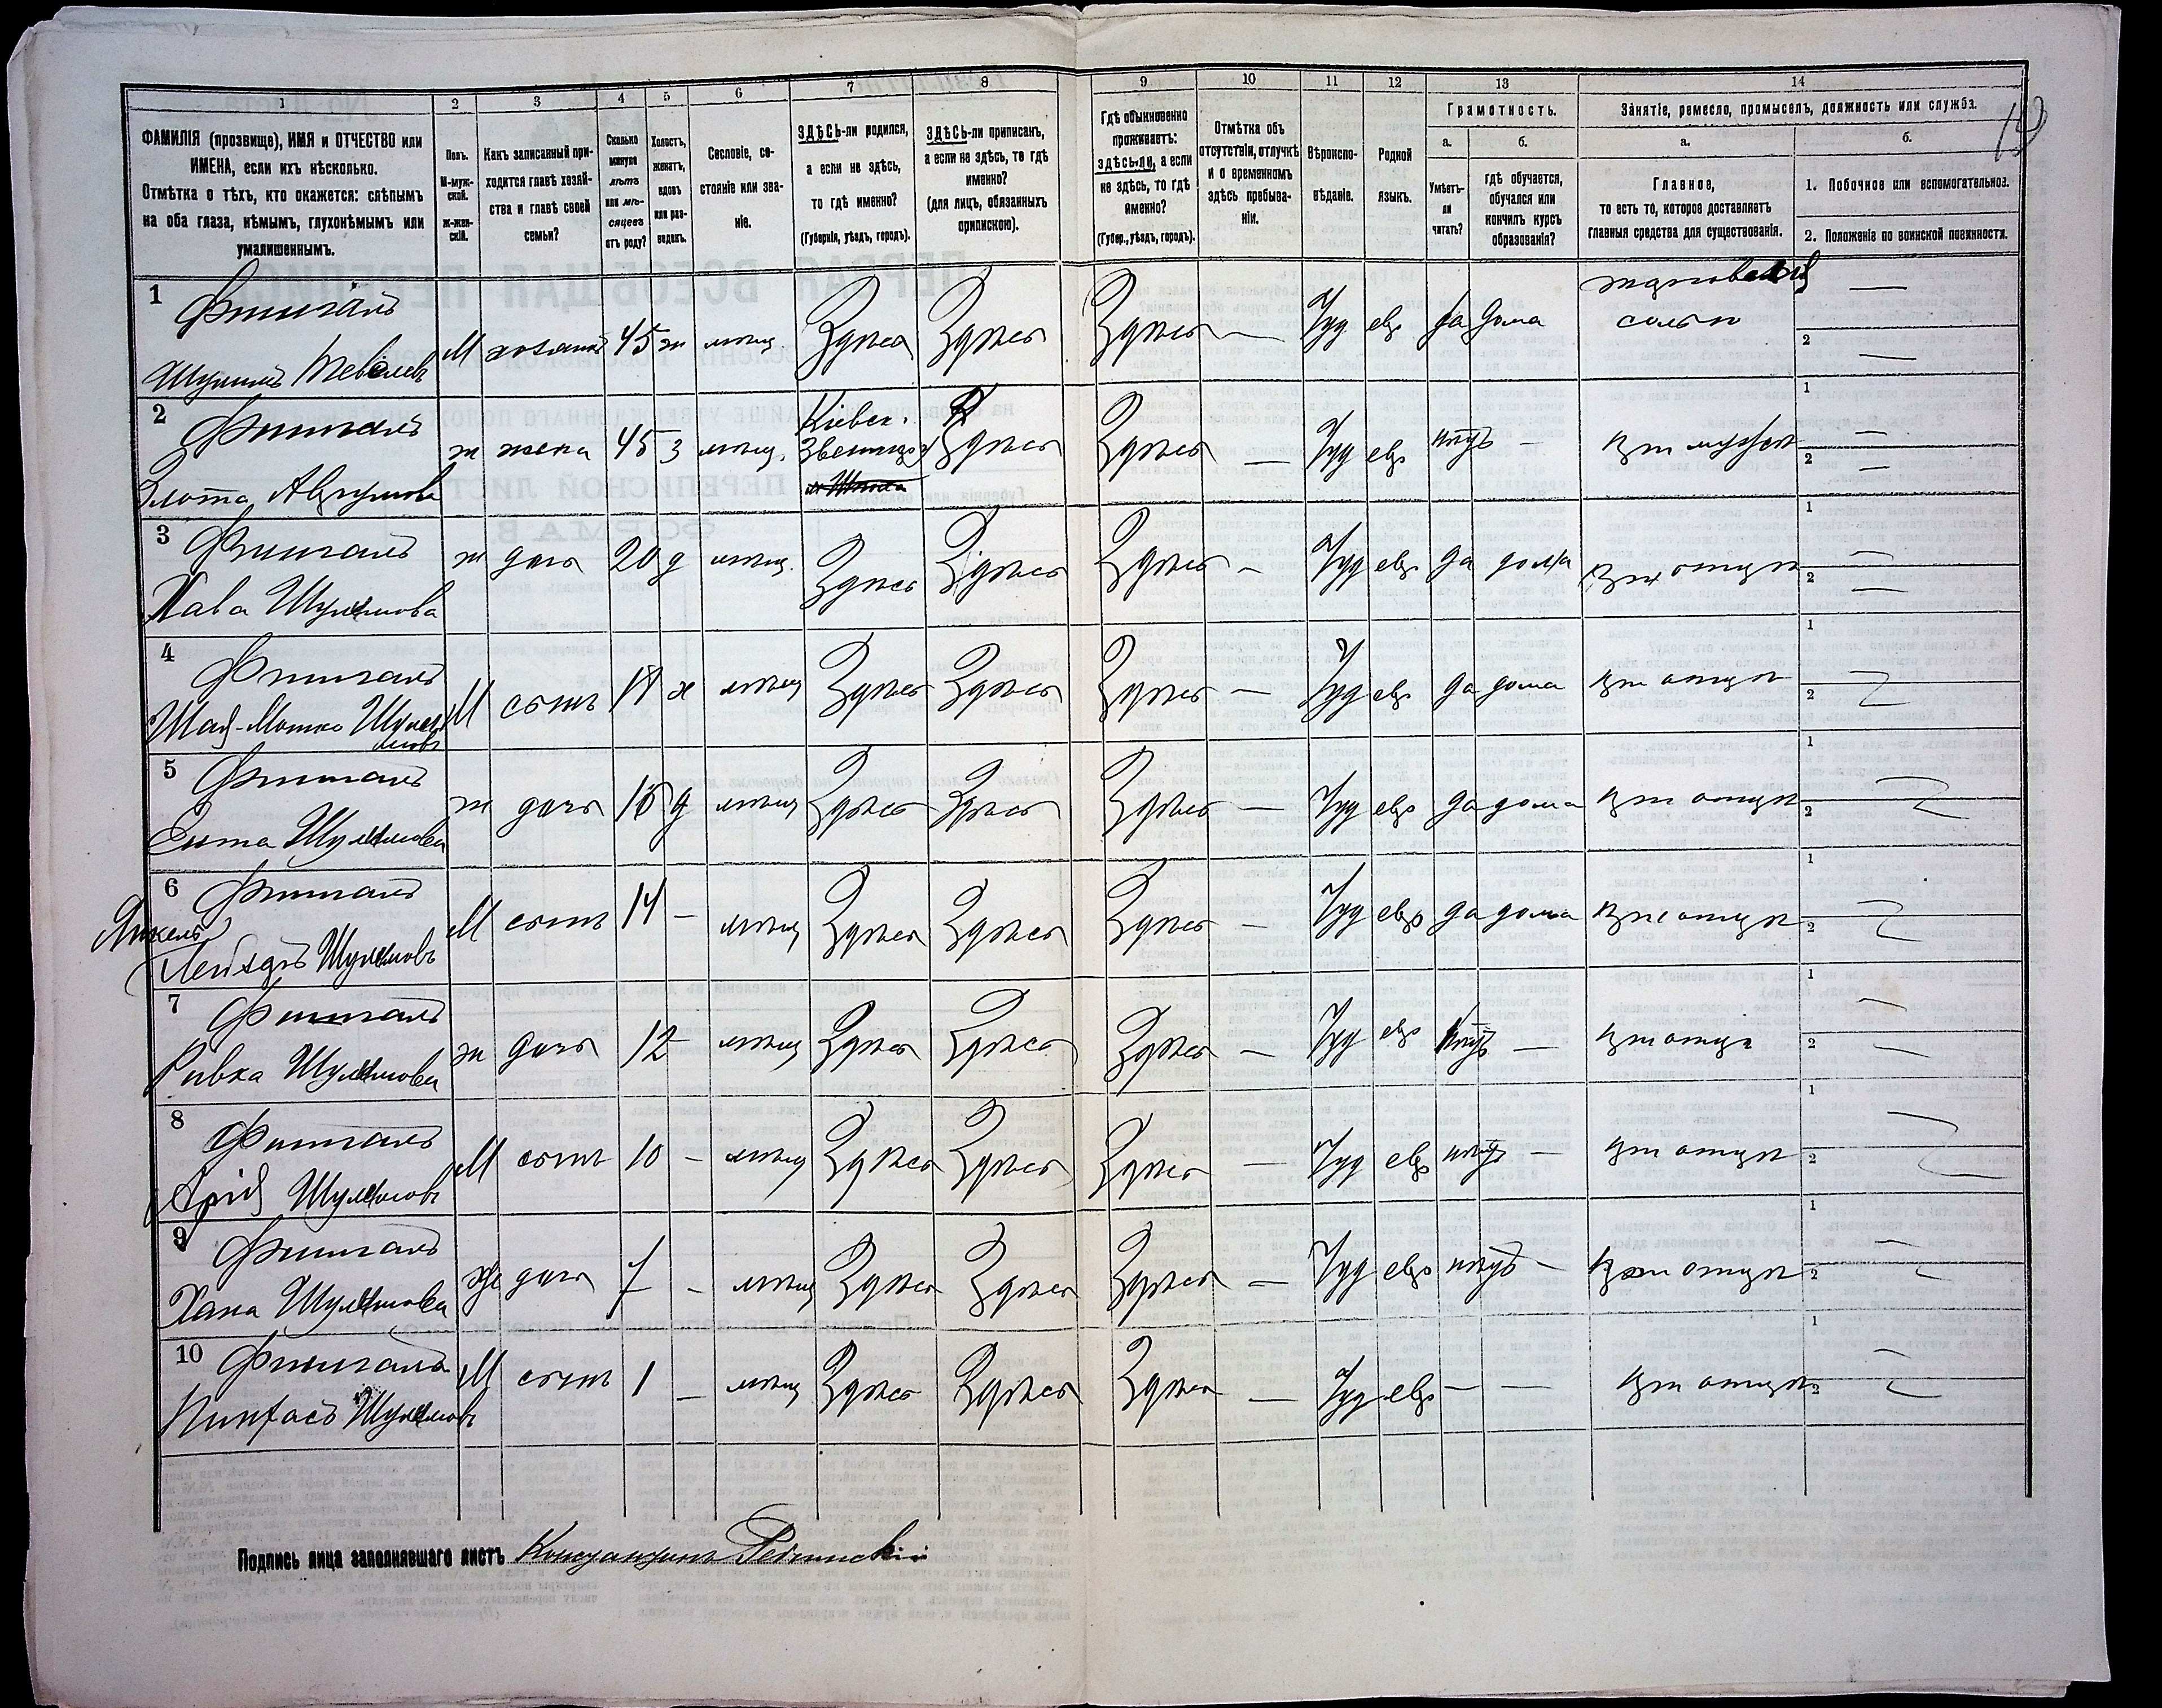 1 2 3 4 5 6 7 8 9 10 11 12 13 14
ФАМИЛІЯ (прозвище), ИМЯ и ОТЧЕСТВО или ИМЕНА, если ихъ нѣсколько.
Отмѣтка о тѣхъ, кто окажется: слѣпымъ на оба глаза, нѣмымъ, глухонѣмымъ или умалишеннымъ.
Полъ. М-мужской. ж-женскій.
Какъ записанный приходится главѣ хозяйства и главѣ своей семьи?
Сколько минуло лѣтъ или мѣсяцевъ отъ роду?
Холостъ, женатъ, вдовъ или разведенъ.
Сословіе, состояніе или званіе.
ЗДѢСЬ-ли родился, а если не здѣсь, то гдѣ именно?
(Губернія, уѣздъ, городъ).
ЗДѢСЬ-ли приписанъ, а если не здѣсь, то гдѣ именно?
(для лицъ, обязанныхъ припискою).
Гдѣ обыкновенно проживаетъ: здѣсь-ли, а если не здѣсь, то гдѣ именно?
(Губер., уѣздъ, городъ).
Отмѣтка объ отсутствіи, отлучкѣ и о временномъ здѣсь пребываніи.
Вѣроисповѣданіе.
Родной языкъ.
Грамотность.
а. Умѣетъ-ли читать?
б. гдѣ обучается, обучался или кончилъ курсъ образованія?
Занятіе, ремесло, промыселъ, должность или служба.
а. Главное, то есть то, которое доставляетъ главныя средства для существованія.
б. 1. Побочное или вспомогательное.
2. Положеніе по воинской повинности.
1 Фишганъ М хозяинъ 45 ж мѣщ. Здѣсь Здѣсь Здѣсь — Іуд евр да дома торговецъ солью —
Шулимъ Тевелевъ 2 —
2 Фишганъ ж жена 45 З мѣщ. Кіевск. Звенигор Здѣсь Здѣсь — Іуд евр нѣтъ — при мужѣ 1 —
Злота Аврумова 2 —
3 Фишганъ ж дочь 20 д мѣщ. Здѣсь Здѣсь Здѣсь — Іуд евр да дома при отцѣ 1 —
Хава Шулимова 2 —
4 Фишганъ М сынъ 18 х мѣщ Здѣсь Здѣсь Здѣсь — Іуд евр да дома при отцѣ 1
Шая-Мотка Шулимовъ 2
5 Фишганъ ж дочь 16 д мѣщ Здѣсь Здѣсь Здѣсь — Іуд евр да дома при отцѣ 1
Ента Шулимова 2
6 Фишганъ М сынъ 14 — мѣщ Здѣсь Здѣсь Здѣсь — Іуд евр да дома при отцѣ 1
Янкель Лейзаръ Шулимовъ 2
7 Фишганъ ж дочь 12 мѣщ Здѣсь Здѣсь Здѣсь — Іуд евр нѣтъ — при отцѣ 1 —
Ривка Шулимова 2 —
8 Фишганъ М сынъ 10 — мѣщ Здѣсь Здѣсь Здѣсь — Іуд евр нѣтъ — при отцѣ 1
Арій Шулимовъ 2
9 Фишганъ ж дочь 7 — мѣщ Здѣсь Здѣсь Здѣсь — Іуд евр нѣтъ — при отцѣ 1 —
Хана Шулимова 2
10 Фишганъ М сынъ 1 — мѣщ Здѣсь Здѣсь Здѣсь — Іуд евр — — при отцѣ 1 —
Пинхасъ Шулимовъ 2
Подпись лица заполнявшаго листъ Константинъ